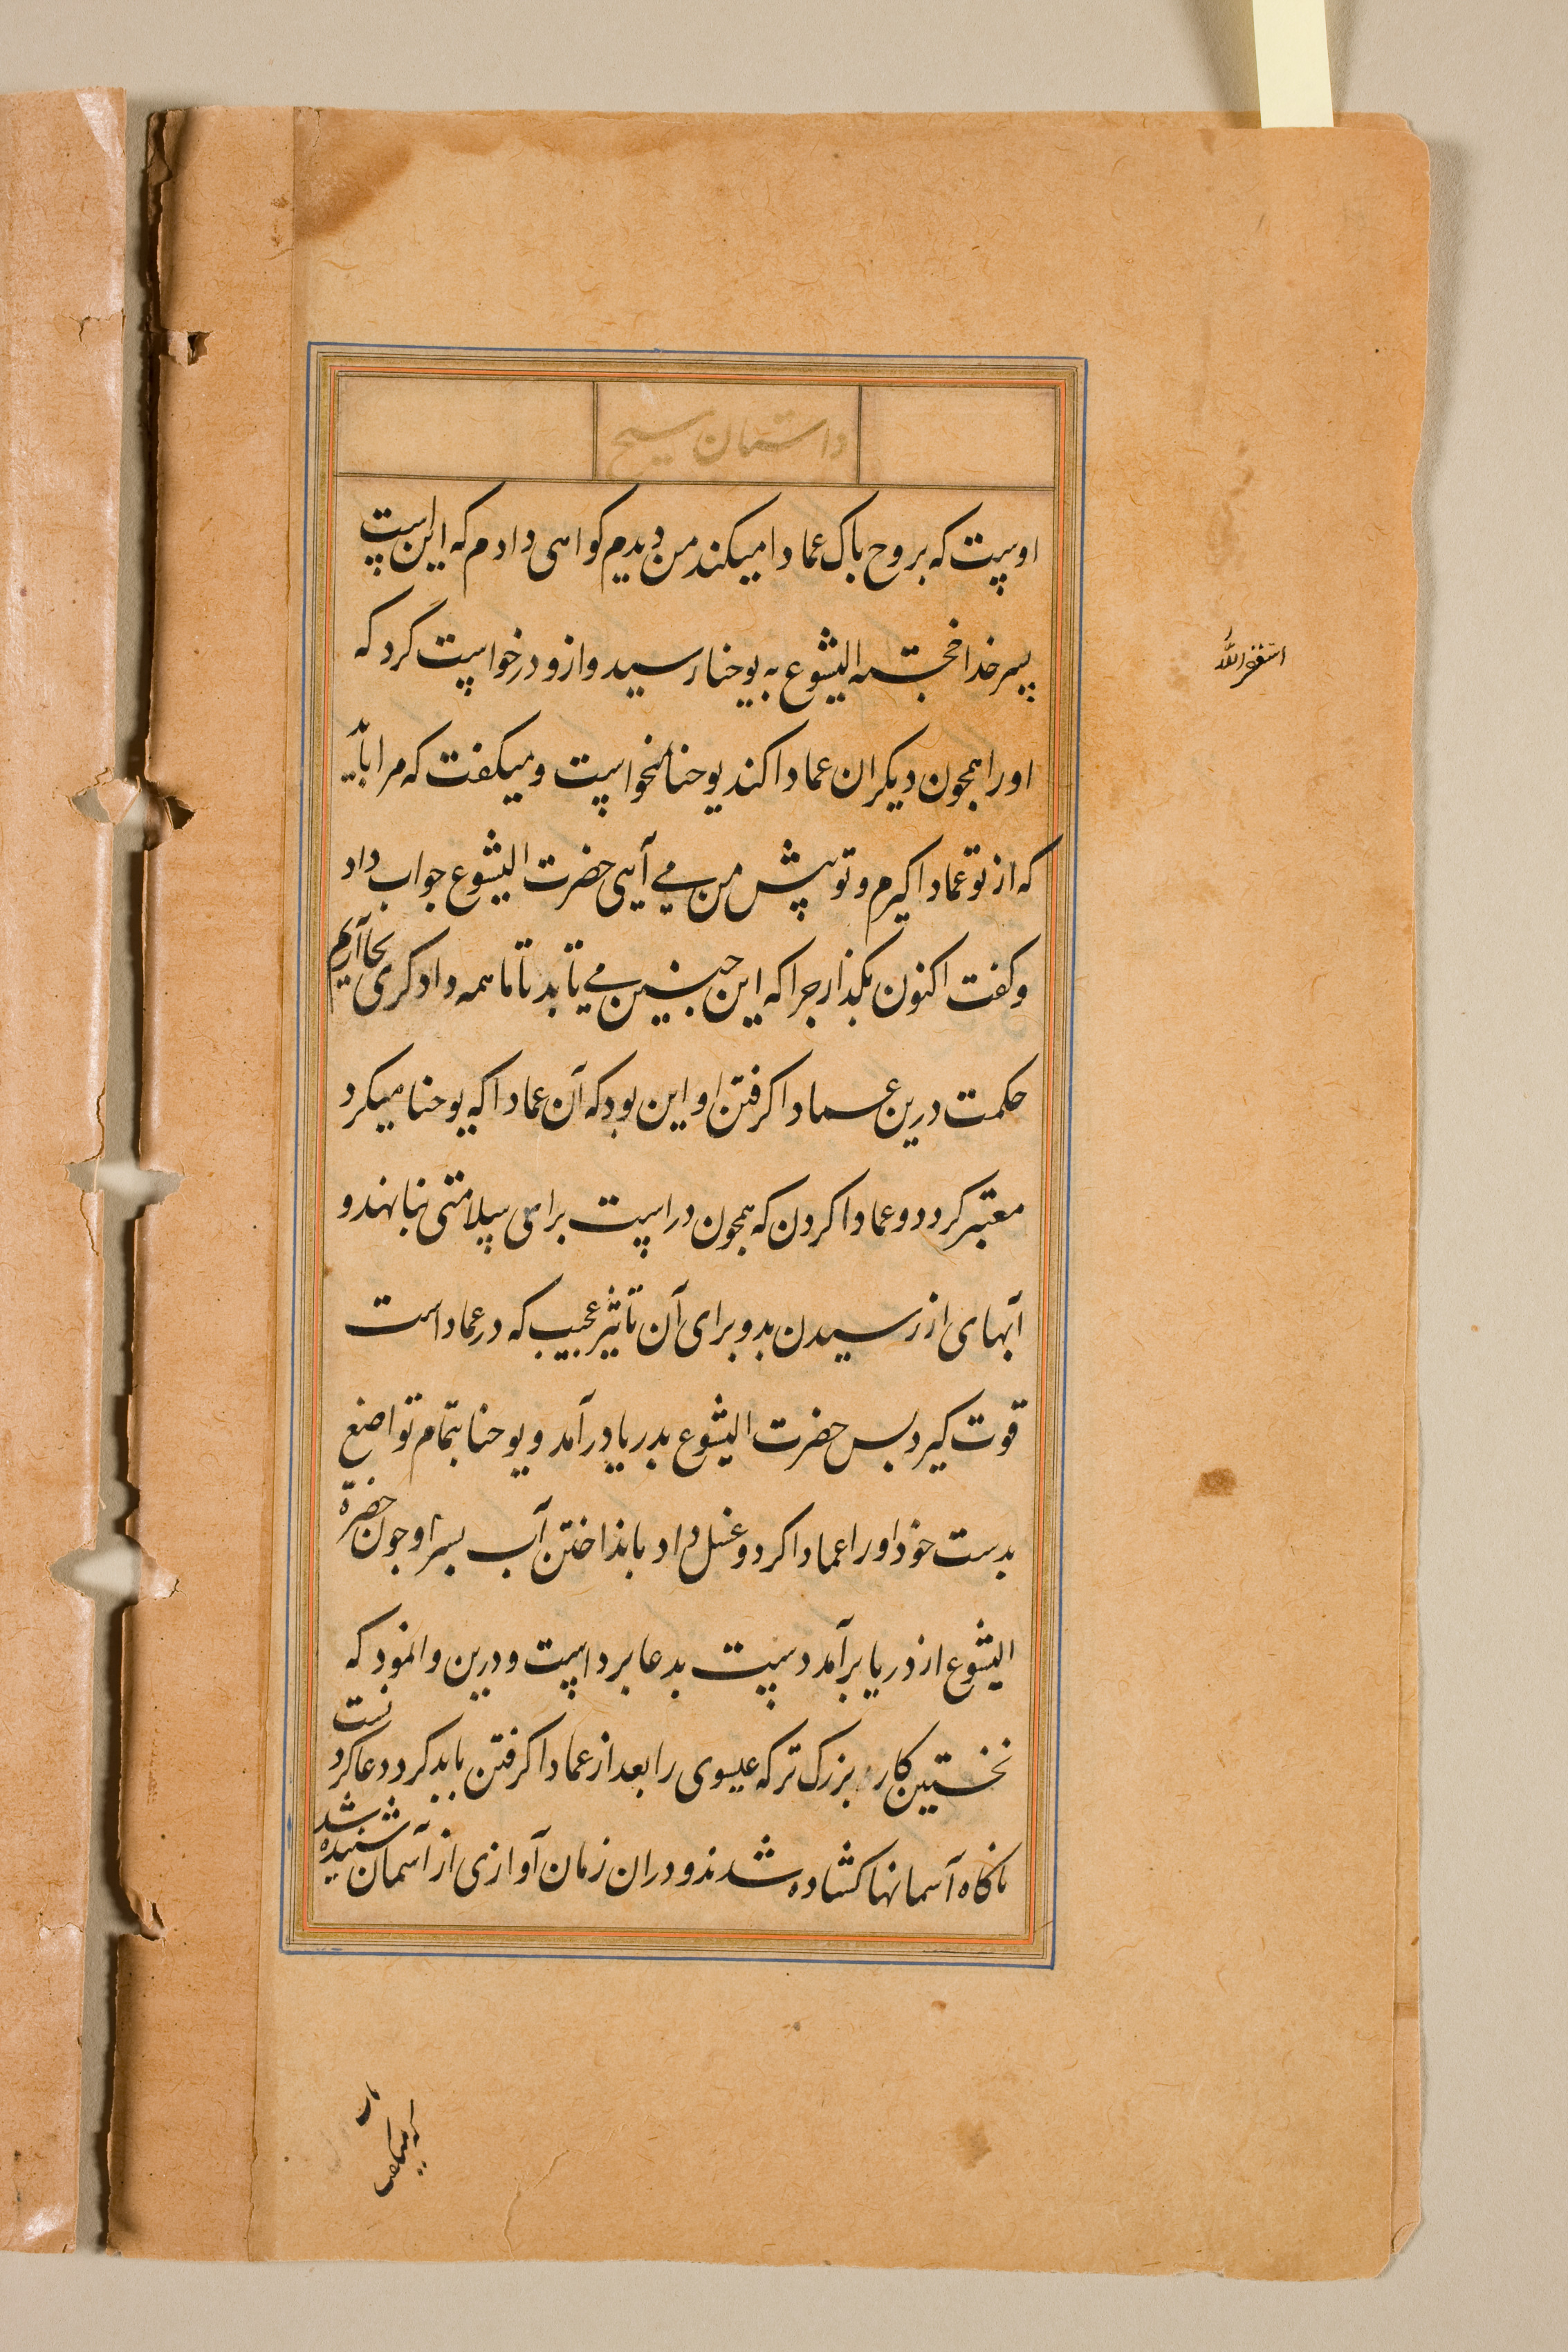 داستان مسیح
اوست که بروح پاک عمادا میکند من دیدم کواهی دادم که این است
پسر خدا خجسته الیشوع به یوحنا رسید و ازو درخواست کرد که
او را همچون دیکران عمادا کند یوحنا نخواست و میکفت که مرا باید
که از تو عمادا کیرم و تو پیش من می آیی حضرت الیشوع جواب داد
و کفت اکنون بکذار چرا که این چنین می یابد تا ما همه دادکری بجا آریم
حکمت درین عمادا کرفتن او این بود که آن عمادا که یوحنا میکرد
معتبر کردد و عمادا کردن که همچون دراست برای سلامتی بنا نهند و
آبهای از رسیدن بدو برای آن تاثیر عجیب که در عماد است
قوت کیرد پس حضرت الیشوع بدریا درآمد و یوحنا بتمام تواضع
بدست خود او را عمادا کرد و غسل داد بانداختن آب بسر او چون حضرة
الیشوع از دریا برآمد دست بدعا برداست و درین وانمود که
نخستین کار بزرک تر که عیسوی را بعد از عمادا کرفتن باید کرد دعا کردنست
ناکاه آسمانها کشاده شدند و دران زمان آوازی از آسمان شنیده شد
استغفر الله